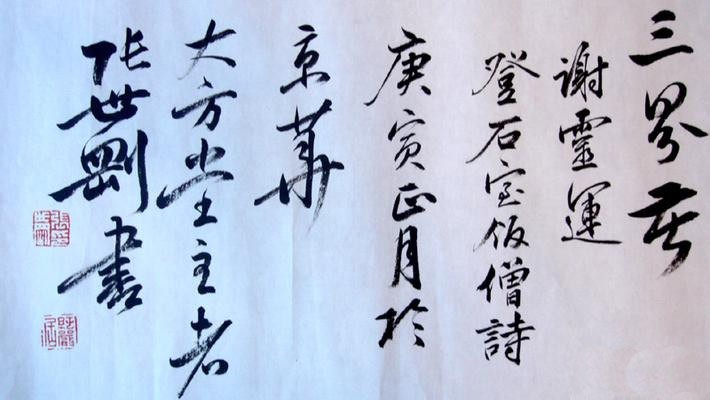 三界苦
謝靈運
登石室饭僧詩
庚寅正月於
京華
大方堂主者
张世剛書